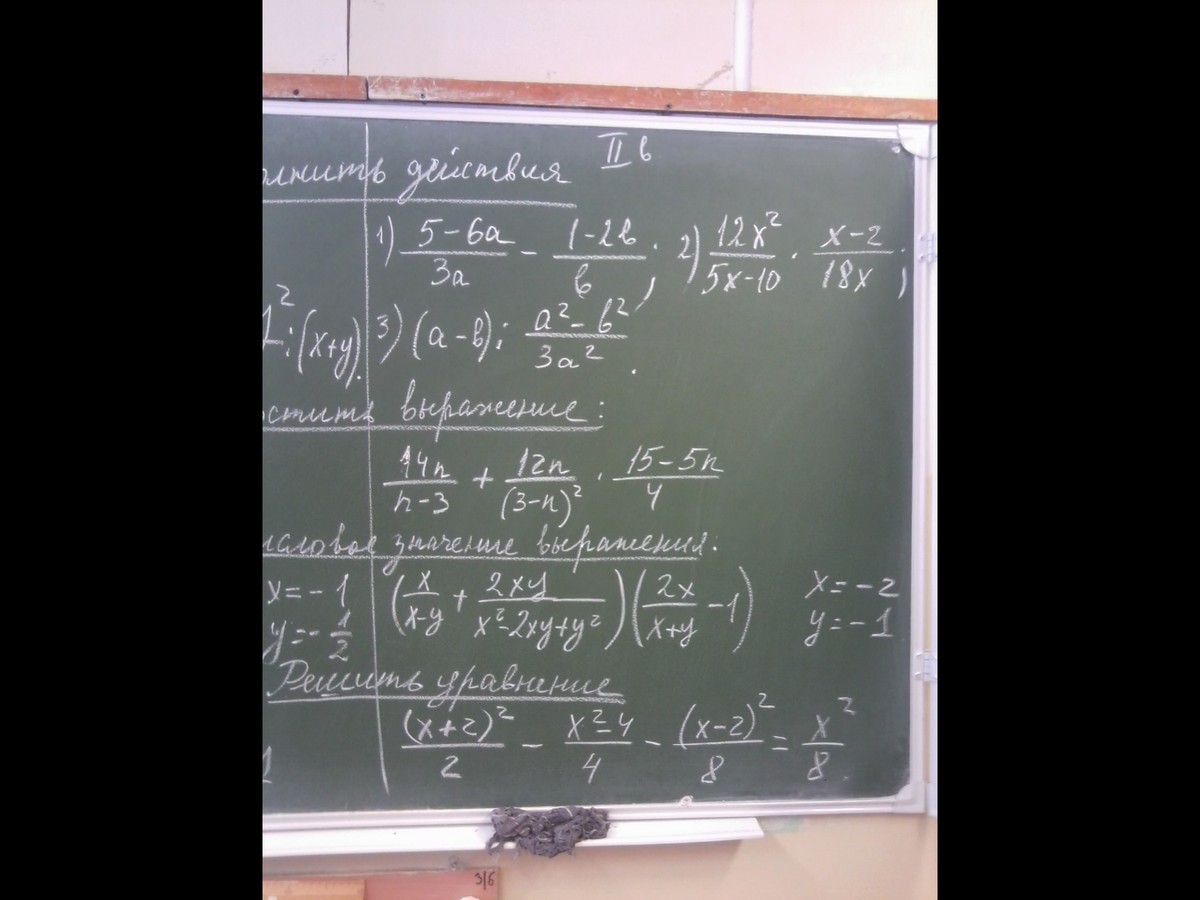 II в
лнить действия
1) (5-6a)/(3a) - (1-2в)/в; 2) (12x²)/(5x-10) · (x-2)/(18x);
² :(x+y). 3) (a-в): (a²-в²)/(3a²).
стить выражение:
14n/(n-3) + 12n/(3-n)² · (15-5n)/4
исловое значение выражения:
x=-1 (x/(x-y) + 2xy/(x²-2xy+y²))(2x/(x+y) -1) x=-2
y=-1/2 y=-1
Решить уравнение
(x+2)²/2 - (x²-4)/4 - (x-2)²/8 = x²/8.
3/б